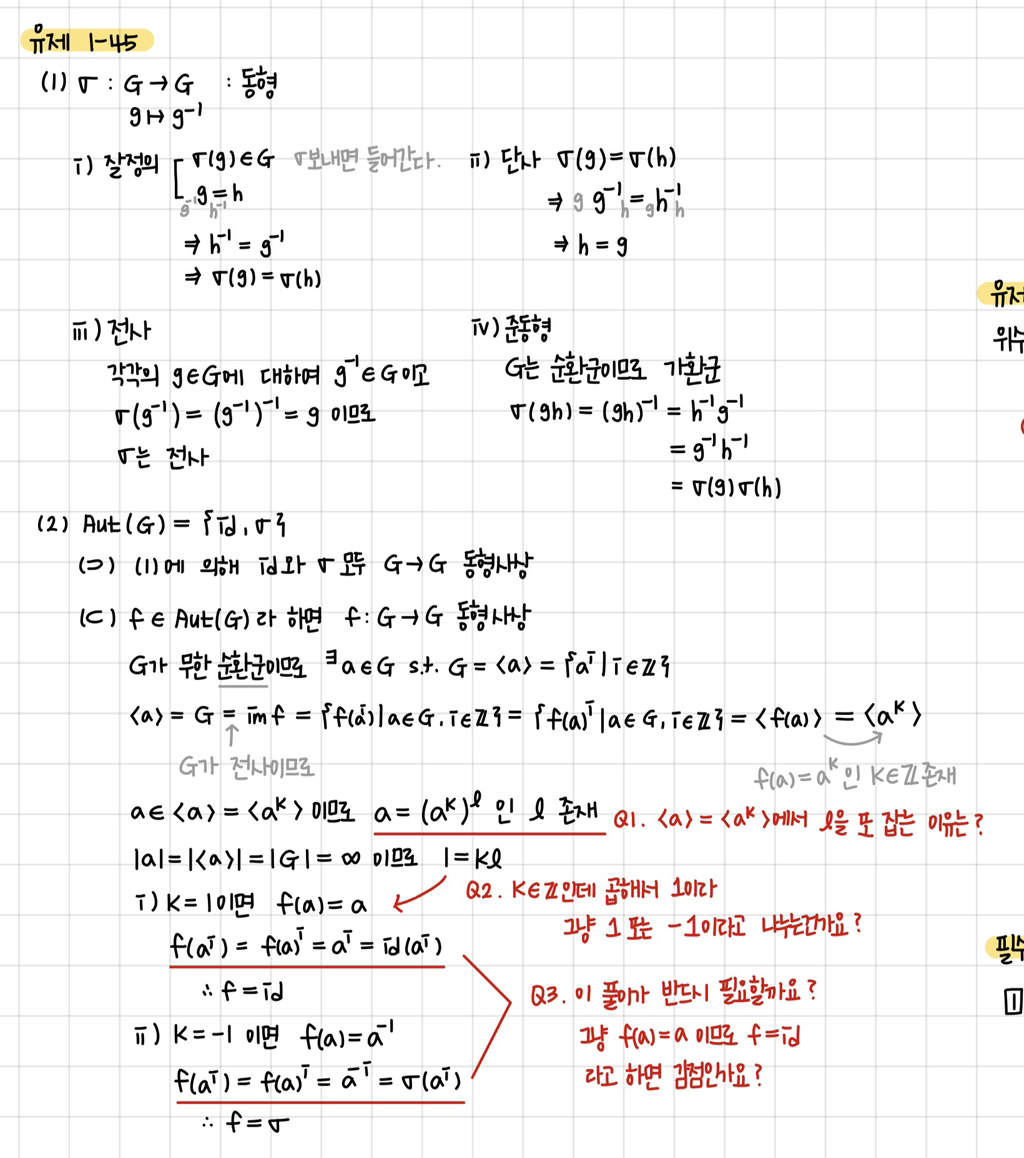 유제 1-45
(1) σ : G → G : 동형
g ↦ g⁻¹
ⅰ) 잘정의 [ σ(g) ∈ G σ보내면 들어간다.
g = h
g⁻¹ h⁻¹
⇒ h⁻¹ = g⁻¹
⇒ σ(g) = σ(h)
ⅱ) 단사 σ(g) = σ(h)
⇒ g g⁻¹ h = g h⁻¹ h
⇒ h = g
ⅲ) 전사
각각의 g ∈ G에 대하여 g⁻¹ ∈ G 이고
σ(g⁻¹) = (g⁻¹)⁻¹ = g 이므로
σ는 전사
ⅳ) 준동형
G는 순환군이므로 가환군
σ(gh) = (gh)⁻¹ = h⁻¹g⁻¹
= g⁻¹h⁻¹
= σ(g)σ(h)
(2) Aut(G) = {id, σ}
(⊃) (1)에 의해 id와 σ 모두 G → G 동형사상
(⊂) f ∈ Aut(G)라 하면 f : G → G 동형사상
G가 무한 순환군이므로 ∃a ∈ G s.t. G = ⟨a⟩ = {aⁱ | i ∈ ℤ}
⟨a⟩ = G = im f = {f(aⁱ) | a ∈ G, i ∈ ℤ} = {f(a)ⁱ | a ∈ G, i ∈ ℤ} = ⟨f(a)⟩ = ⟨aᵏ⟩
↑
G가 전사이므로
f(a) = aᵏ 인 k ∈ ℤ 존재
a ∈ ⟨a⟩ = ⟨aᵏ⟩ 이므로 a = (aᵏ)ˡ 인 l 존재
Q1. ⟨a⟩ = ⟨aᵏ⟩에서 l을 또 잡는 이유는?
|a| = |⟨a⟩| = |G| = ∞ 이므로 1 = kl
Q2. k ∈ ℤ인데 곱해서 1이라
그냥 1 또는 -1이라고 나누는건가요?
ⅰ) k = 1이면 f(a) = a
f(aⁱ) = f(a)ⁱ = aⁱ = id(aⁱ)
∴ f = id
ⅱ) k = -1 이면 f(a) = a⁻¹
f(aⁱ) = f(a)ⁱ = a⁻ⁱ = σ(aⁱ)
∴ f = σ
Q3. 이 풀이가 반드시 필요할까요?
그냥 f(a) = a 이므로 f = id
라고 하면 감점인가요?
유제
위수
필수
1